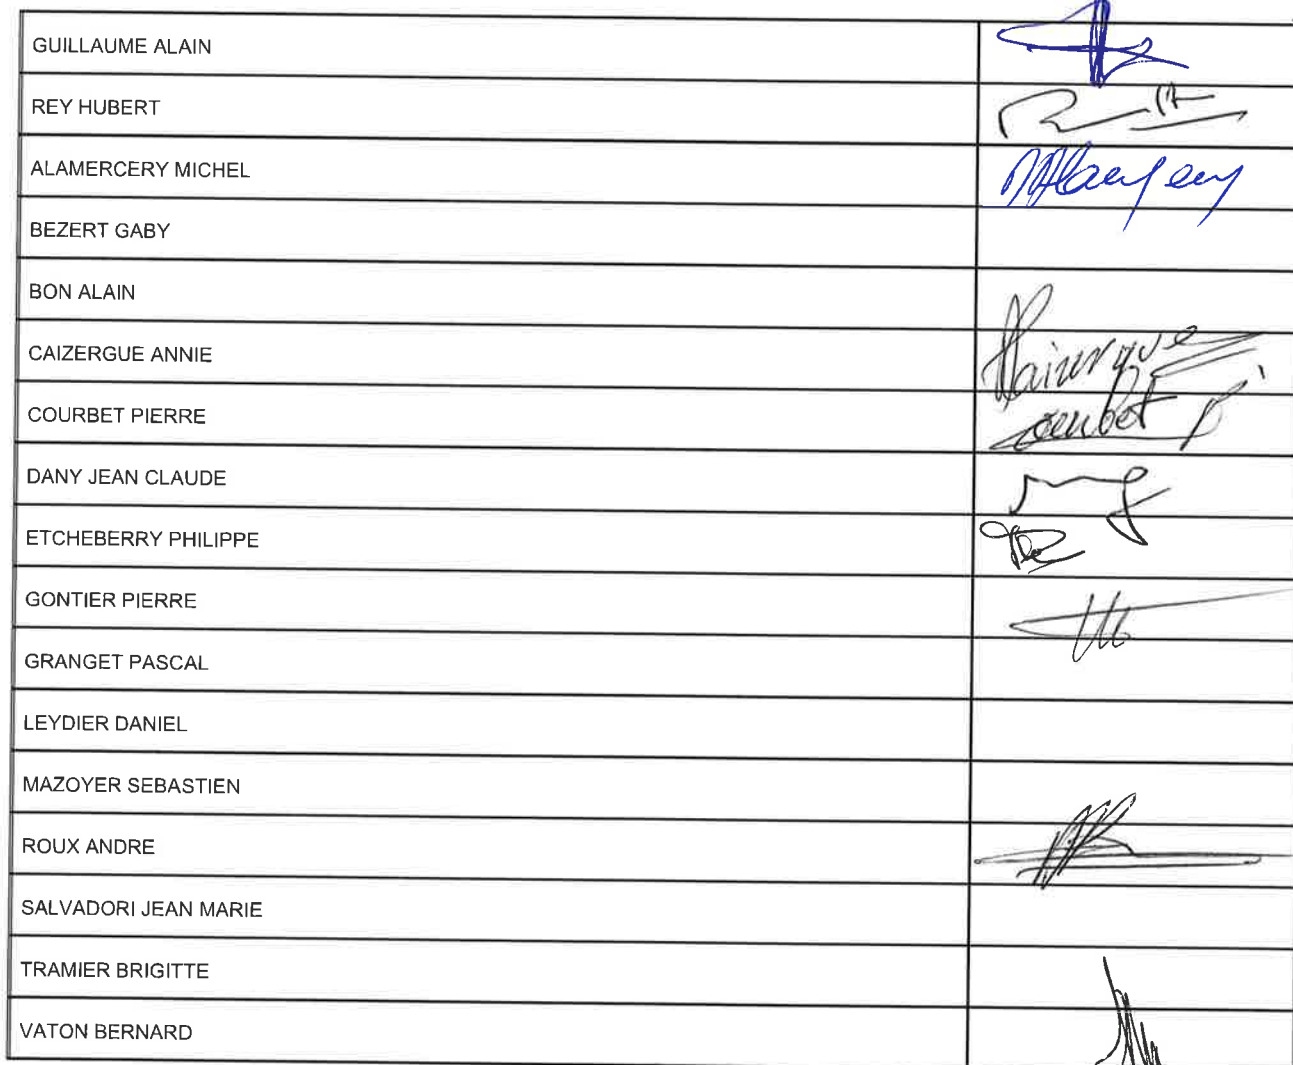 GUILLAUME ALAIN
REY HUBERT
ALAMERCERY MICHEL
BEZERT GABY
BON ALAIN
CAIZERGUE ANNIE
COURBET PIERRE
Courbet P
DANY JEAN CLAUDE
ETCHEBERRY PHILIPPE
GONTIER PIERRE
GRANGET PASCAL
LEYDIER DANIEL
MAZOYER SEBASTIEN
ROUX ANDRE
SALVADORI JEAN MARIE
TRAMIER BRIGITTE
VATON BERNARD